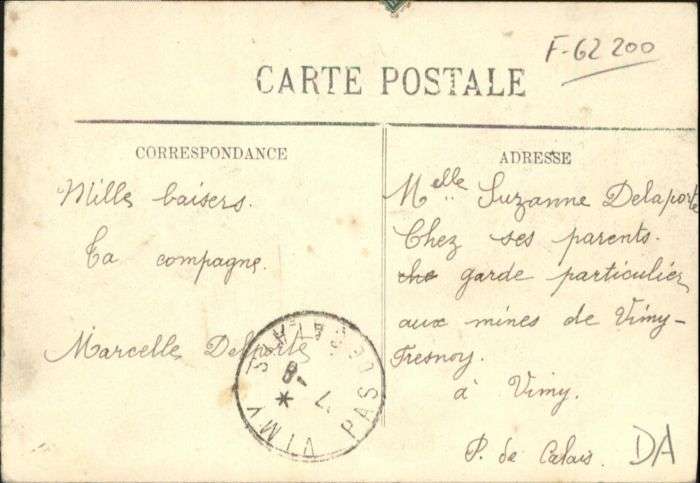 F-62200
CARTE POSTALE
CORRESPONDANCE
Mille baisers.
Ta compagne.
Marcelle Delporte
ADRESSE
Melle Suzanne Delaporte
Chez ses parents.
che garde particulier
aux mines de Vimy-
Fresnoy.
à Vimy.
P. de Calais.
DA
VIMY PAS DE